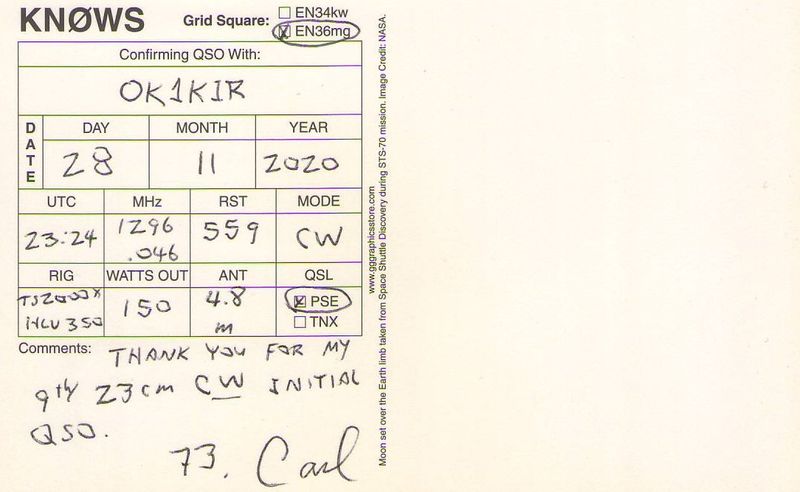 KNØWS
Grid Square: ☐ EN34kw
☒ EN36mg
Confirming QSO With:
OK1KIR
DATE
DAY MONTH YEAR
28 11 2020
UTC MHz RST MODE
23:24 1296 559 CW
.046
RIG WATTS OUT ANT QSL
TS2000X 150 4.8 ☒ PSE
350 m ☐ TNX
Comments: THANK YOU FOR MY
9th 23cm CW INITIAL
QSO.
73. Carl
www.gggraphicsstore.com
Moon set over the Earth limb taken from Space Shuttle Discovery during STS-70 mission. Image Credit: NASA.